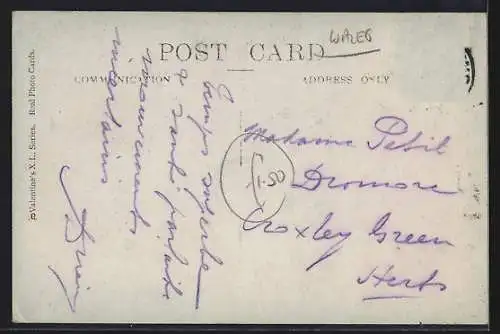 WALES
POST CARD
COMMUNICATION
ADDRESS ONLY
Valentine's X.L. Series. Real Photo Cards.
Temps superbe
& santé parfaite
mouvements
incertains
Madame Petit
Dromore
Croxley Green
Herts
1.50